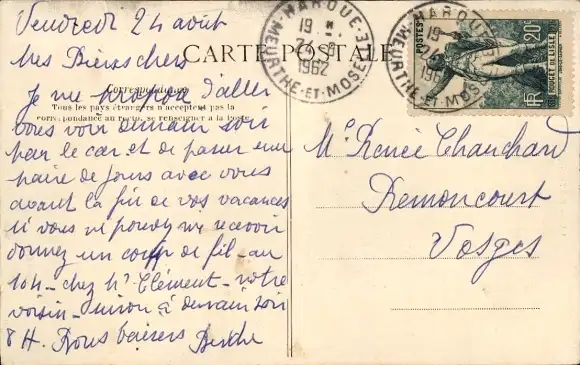 Vendredi 24 août
Mes Biens chers
CARTE POSTALE
Correspondance
Tous les pays étrangers n'acceptent pas la
correspondance au recto, se renseigner à la Poste
Je me propose d'aller
vous voir demain soir
par le car et de passer une
paire de jours avec vous
avant la fin de vos vacances
si vous ne pouvez me recevoir
donnez un coup de fil - au
104 - chez Mr Clément - notre
voisin - sinon à demain soir
8 H. Bons baisers Berthe
MAROUE
19 -
24-8
1962
MEURTHE-ET-MOSELLE
POSTES
20c
ROUGET DE LISLE
RF
Me Renée Chanchard
Remoncourt
Vosges